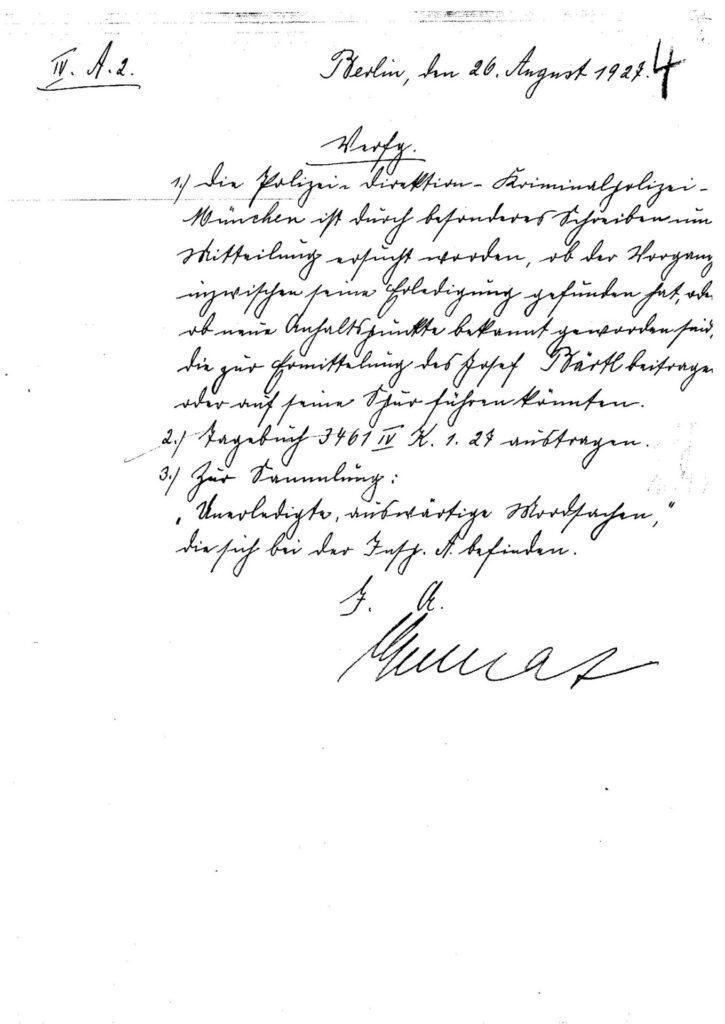 IV. A. 2.
Berlin, den 26. August 1927. 4
Verfg.
1.) Die Polizei-Direktion - Kriminalpolizei -
München ist durch besonderes Schreiben um
Mitteilung ersucht worden, ob der Vorgang
inzwischen seine Erledigung gefunden hat, ode
ob neue Anhaltspunkte bekannt geworden sind,
die zur Ermittelung des Josef Bärtl beitrage
oder auf seine Spur führen könnten.
2.) Tagebuch 3461 IV K. 1. 27 austragen.
3.) Zur Sammlung:
„Unerledigte, auswärtige Mordsachen,"
die sich bei der Insp. A. befinden.
I. A.
Gennat